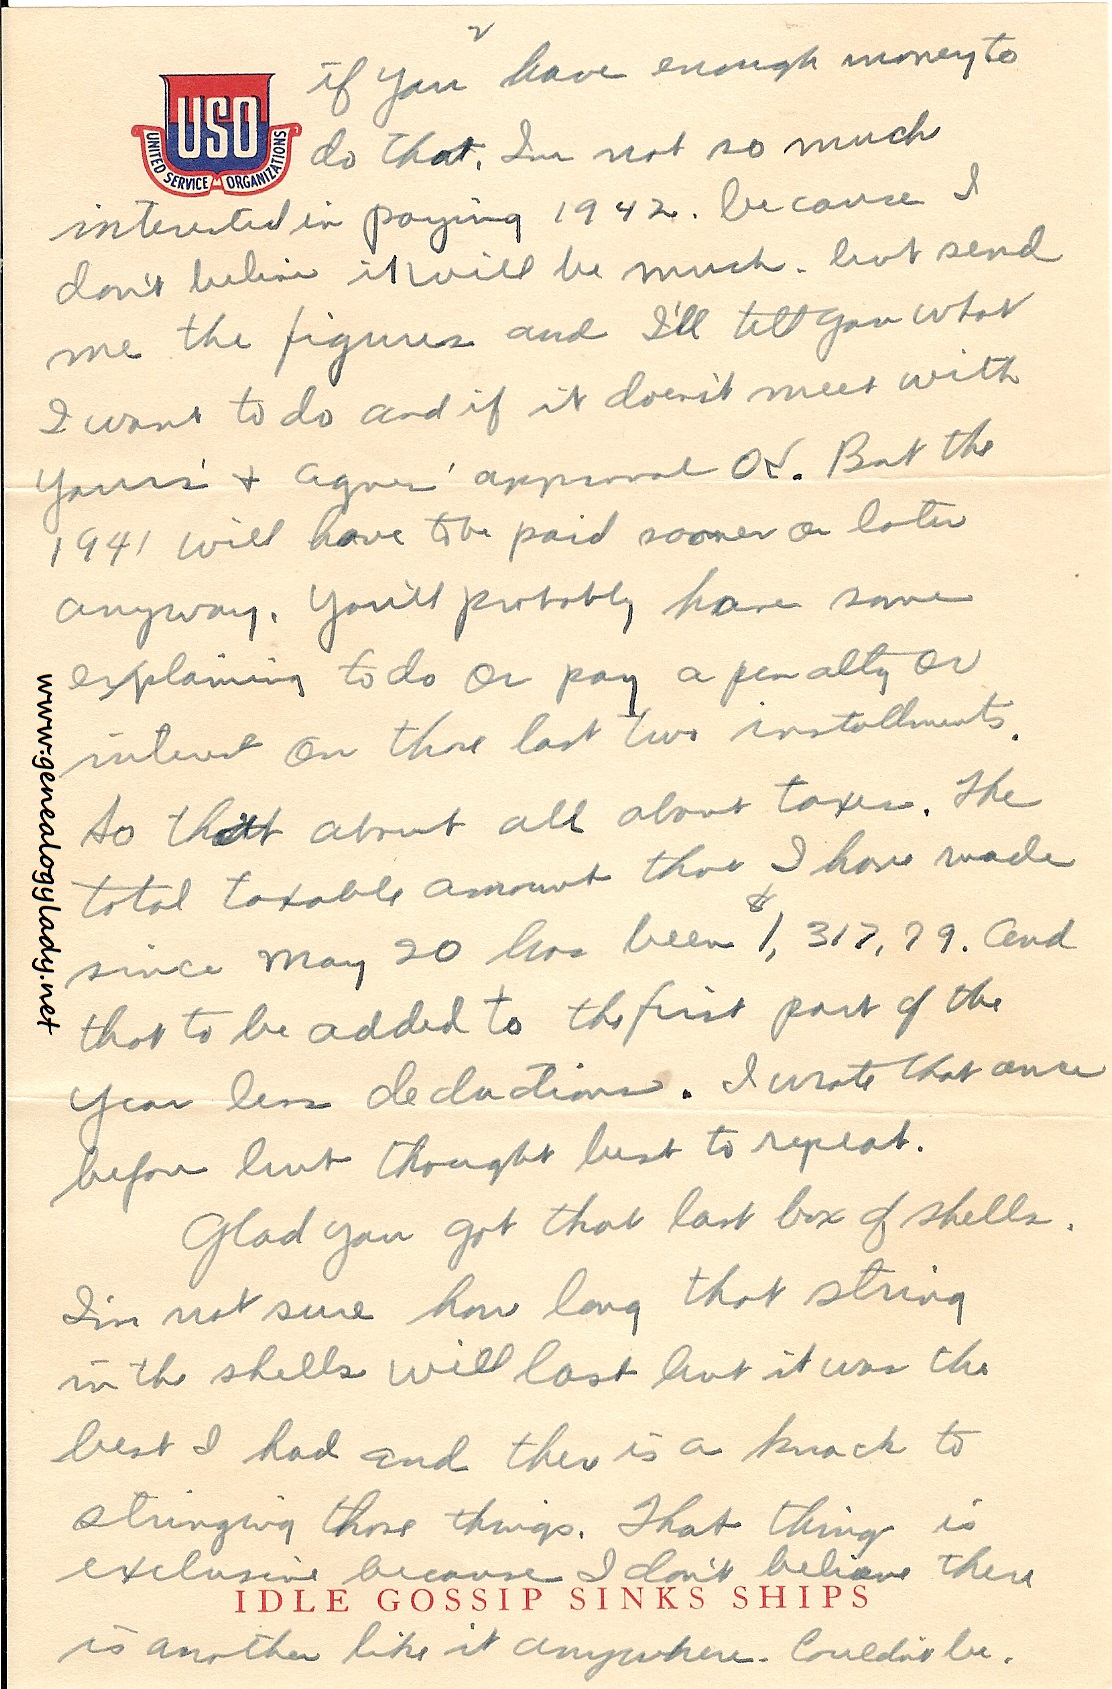 2
USO
UNITED SERVICE ORGANIZATIONS
if you have enough money to
do that. I'm not so much
interested in paying 1942. because I
don't believe it will be much. but send
me the figures and I'll tell you what
I want to do and if it doesn't meet with
Yours' + Agnes' approval OK. But the
1941 will have to be paid sooner or later
anyway. You'll probably have some
explaining to do or pay a penalty or
interest on those last two installments.
So that about all about taxes. The
total taxable amount that I have made
since May 20 has been $1,317,79. and
that to be added to the first part of the
year less deductions. I wrote that once
before but thought best to repeat.
Glad you got that last box of shells.
I'm not sure how long that string
in the shells will last but it was the
best I had and there is a knack to
stringing those things. That thing is
exclusive because I don't believe there
IDLE GOSSIP SINKS SHIPS
is another like it anywhere. Couldn't be.
www.genealogylady.net